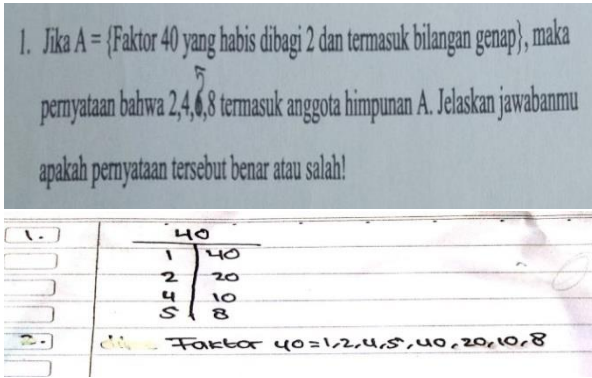 1. Jika A = {Faktor 40 yang habis dibagi 2 dan termasuk bilangan genap}, maka
5
pernyataan bahwa 2,4,6,8 termasuk anggota himpunan A. Jelaskan jawabanmu
apakah pernyataan tersebut benar atau salah!
1. 40
1 40
2 20
4 10
5 8
2. Faktor 40 = 1,2,4,5,40,20,10,8